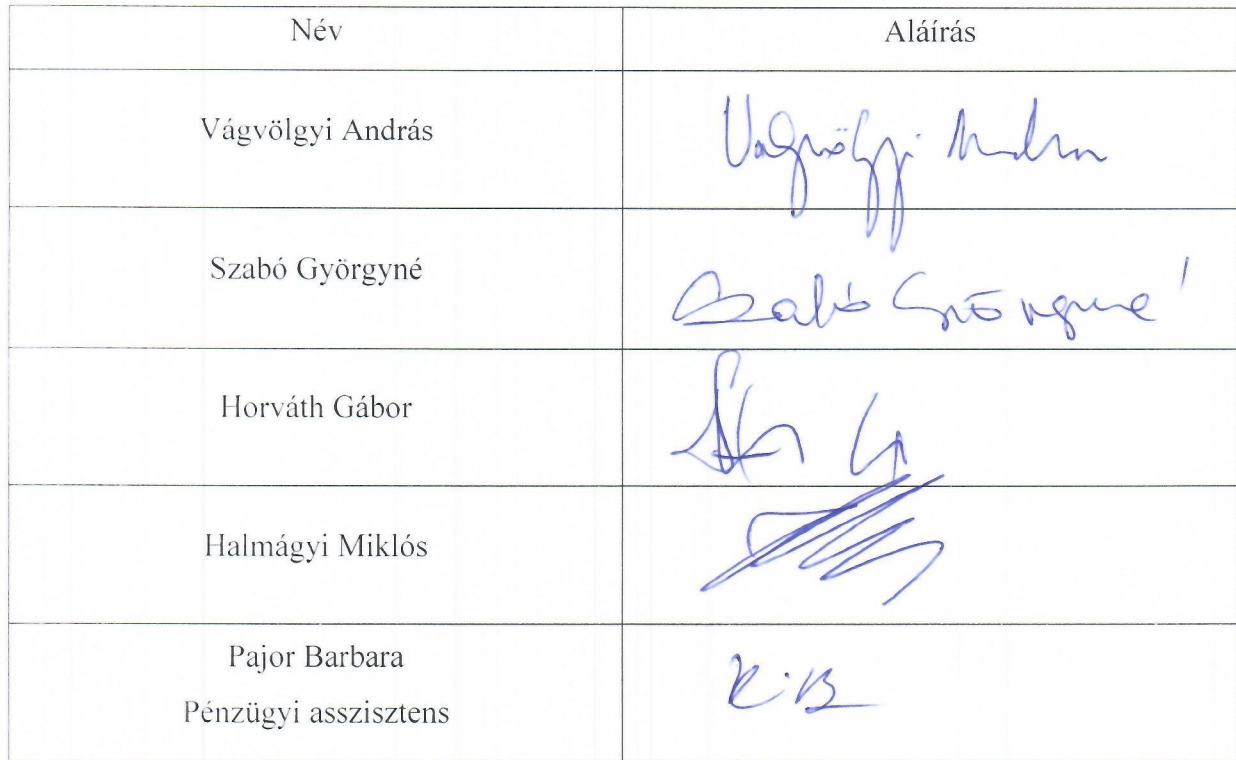 Név Aláírás
Vágvölgyi András Vágvölgyi András
Szabó Györgyné Szabó Györgyné
Horváth Gábor
Halmágyi Miklós
Pajor Barbara
Pénzügyi asszisztens